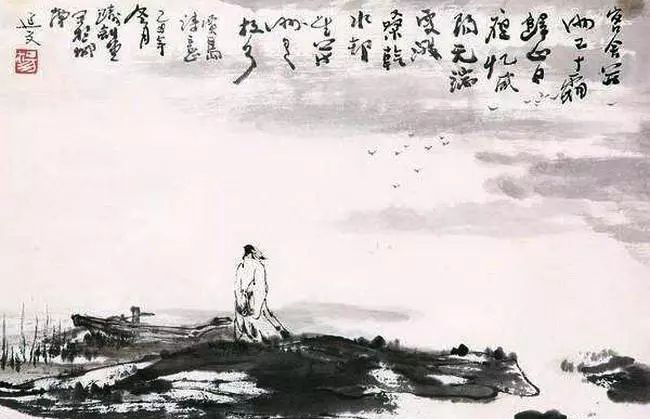 客舍并
州已十霜
歸心日
夜忆咸
阳无端
更渡
桑乾
水却
望并
州是
故乡
贾岛
诗意
乙丑年
冬月
延文